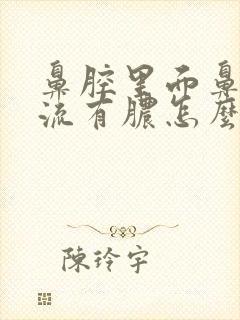 鼻腔里而鼻
流有膿怎麼
陳玲宇